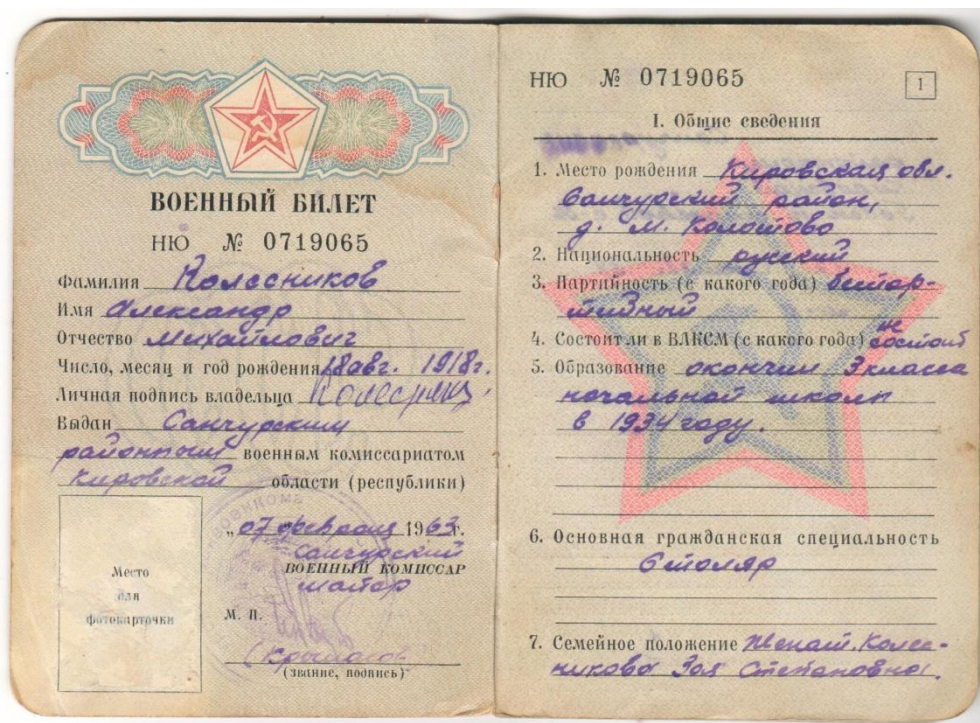 ВОЕННЫЙ БИЛЕТ
НЮ № 0719065
Фамилия Колесников
Имя Александр
Отчество Михайлович
Число, месяц и год рождения 18 авг. 1918г.
Личная подпись владельца
Выдан Санчурским
районным военным комиссариатом
Кировской области (республики)
„07 февраля 1963г.
Санчурский
ВОЕННЫЙ КОМИССАР
майор
Место
для
фотокарточки
М. П.
(звание, подпись)
НЮ № 0719065
1
I. Общие сведения
1. Место рождения Кировская обл.
Санчурский район,
д. М. Колотово
2. Национальность русский
3. Партийность (с какого года) беспар-
тийный
4. Состоит ли в ВЛКСМ (с какого года) не
состоит
5. Образование окончил 3 класса
начальной школы
в 1934 году.
6. Основная гражданская специальность
Столяр
7. Семейное положение Женат. Колес-
никова Зоя Степановна.